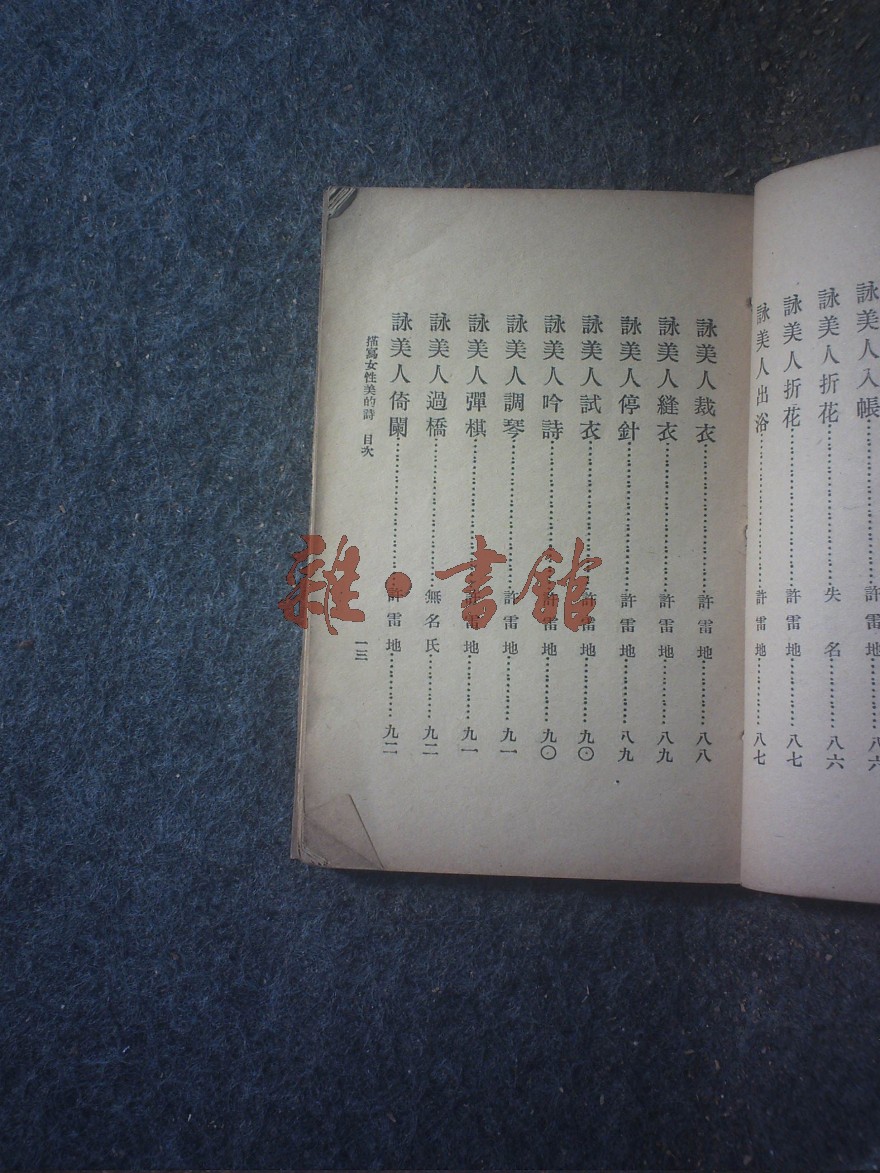 詠美人入帳……許雷地……八六
詠美人折花……失名……八六
詠美人折花……許雷地……八七
詠美人出浴……許雷地……八七
詠美人裁衣……許雷地……八八
詠美人縫衣……許雷地……八九
詠美人停針……許雷地……八九
詠美人試衣……許雷地……九〇
詠美人吟詩……許雷地……九〇
詠美人調琴……許雷地……九一
詠美人彈棋……許雷地……九一
詠美人過橋……無名氏……九二
詠美人倚闌……許雷地……九二
描寫女性美的詩 目次
一三
雜·書館